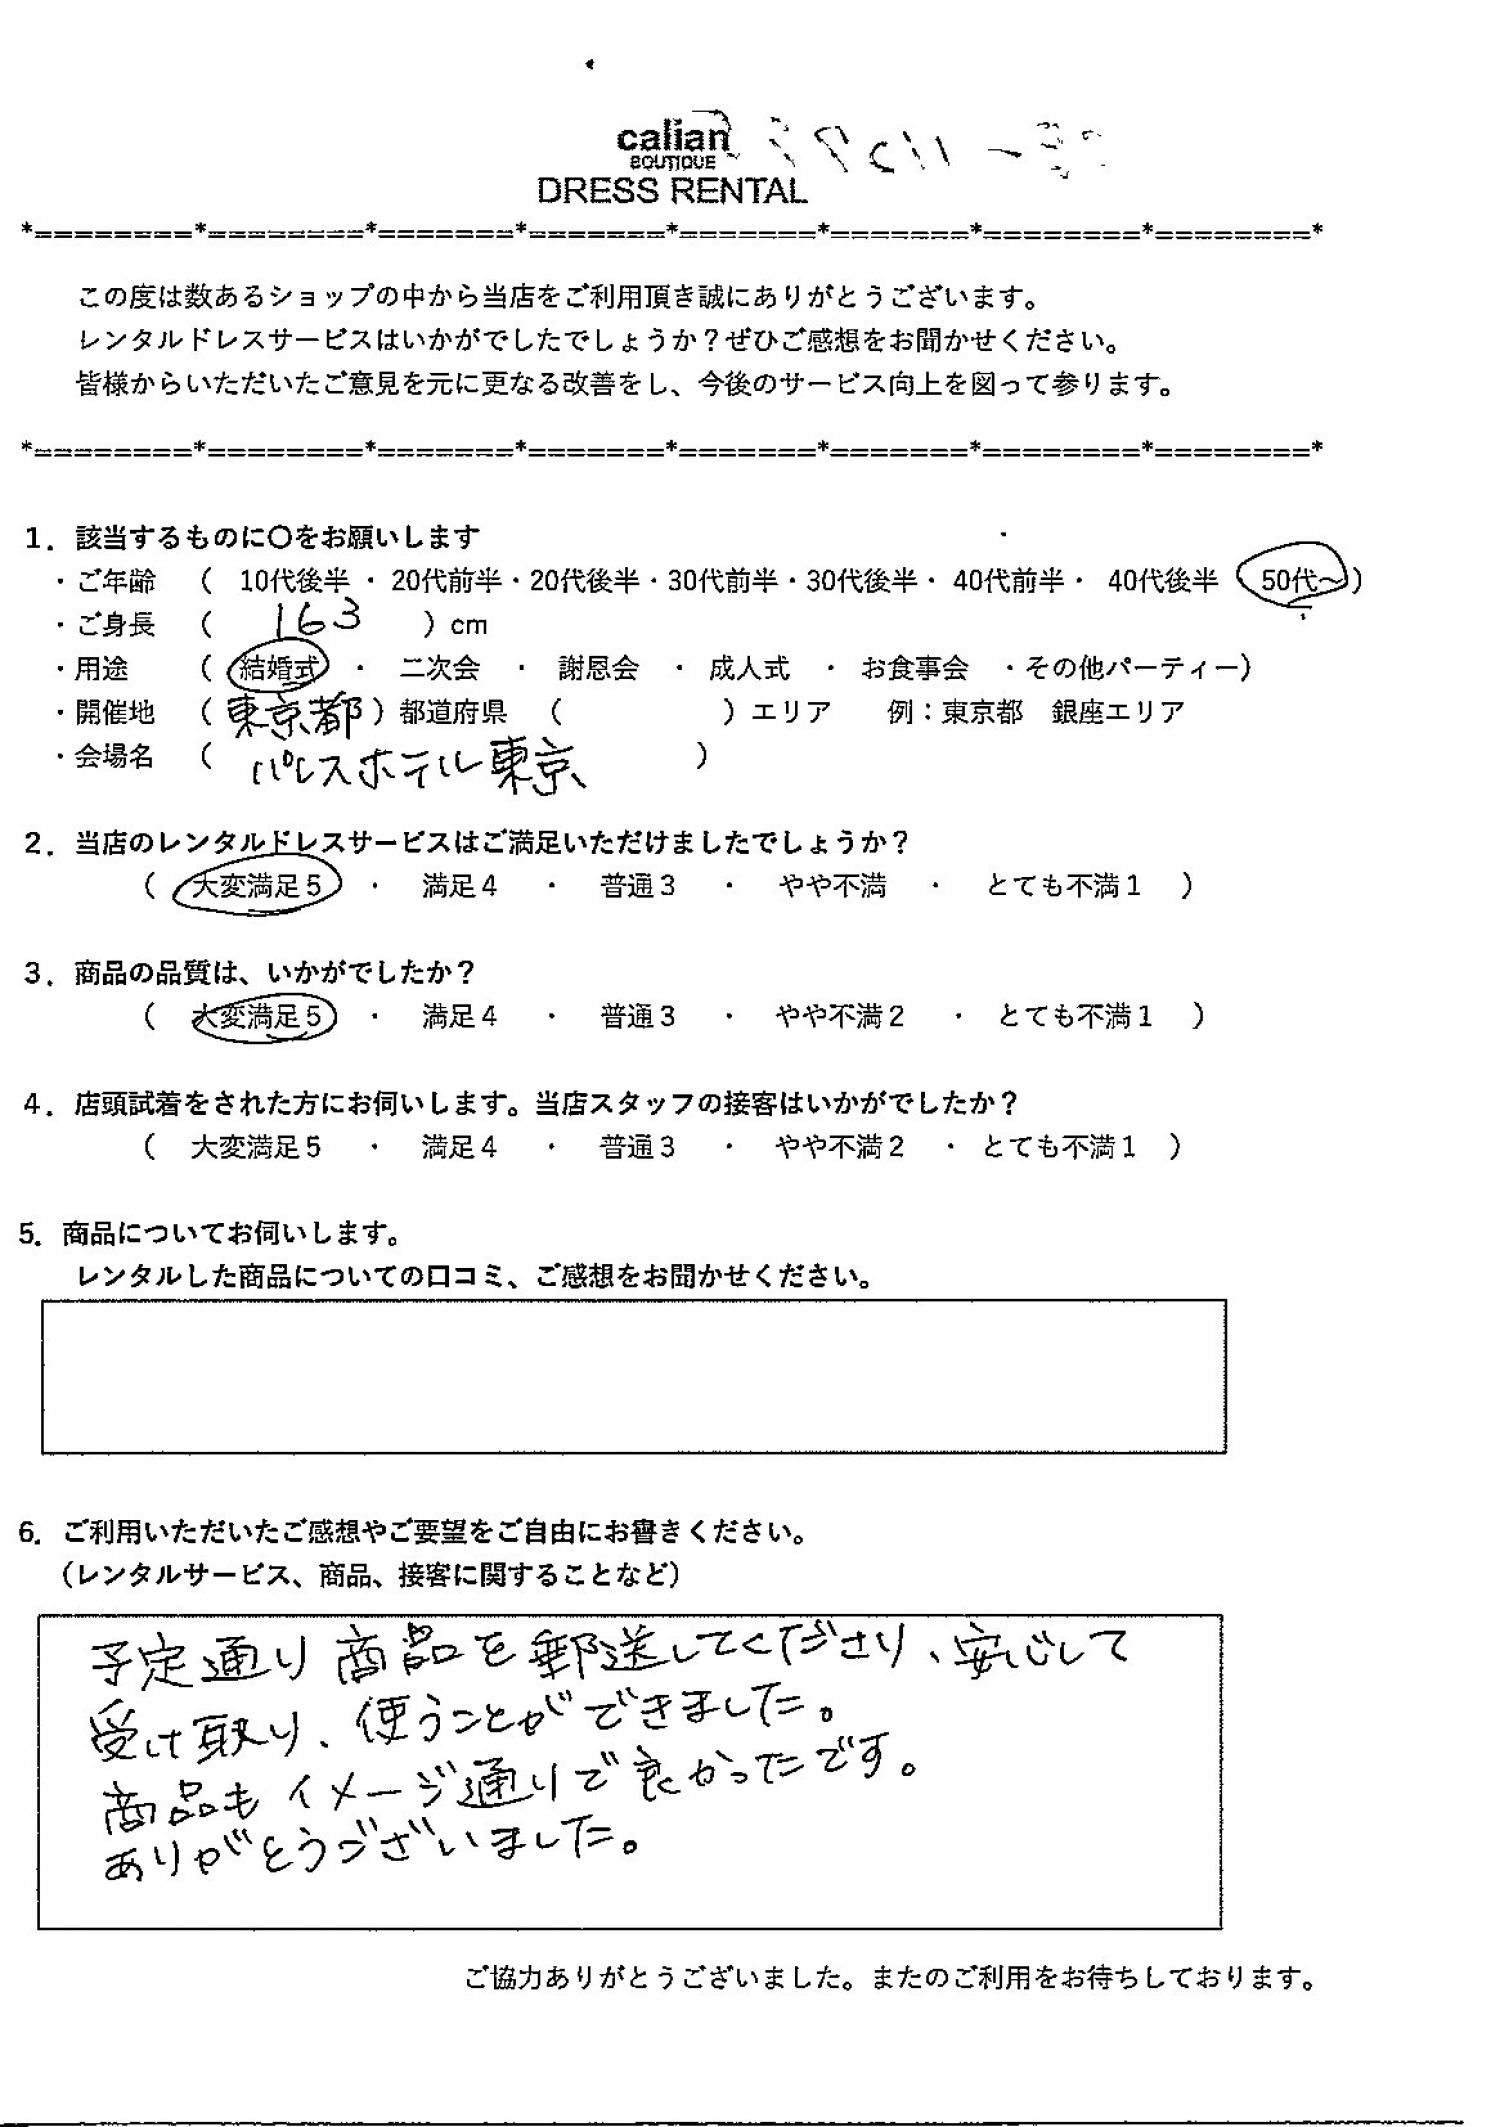 calian
BOUTIQUE
DRESS RENTAL
*========*========*=======*=======*=======*=======*========*========*
この度は数あるショップの中から当店をご利用頂き誠にありがとうございます。
レンタルドレスサービスはいかがでしたでしょうか？ぜひご感想をお聞かせください。
皆様からいただいたご意見を元に更なる改善をし、今後のサービス向上を図って参ります。
*========*========*=======*=======*=======*=======*========*========*
1．該当するものに〇をお願いします
・ご年齢 （ 10代後半・20代前半・20代後半・30代前半・30代後半・40代前半・ 40代後半 50代～）
・ご身長 （ 163 ）cm
・用途 （ 結婚式 ・ 二次会 ・ 謝恩会 ・ 成人式 ・ お食事会 ・その他パーティー）
・開催地 （ 東京都 ）都道府県 （ ）エリア 例：東京都 銀座エリア
・会場名 （ パレスホテル東京 ）
2．当店のレンタルドレスサービスはご満足いただけましたでしょうか？
（ 大変満足５ ・ 満足４ ・ 普通３ ・ やや不満 ・ とても不満１ ）
3．商品の品質は、いかがでしたか？
（ 大変満足５ ・ 満足４ ・ 普通３ ・ やや不満２ ・ とても不満１ ）
4．店頭試着をされた方にお伺いします。当店スタッフの接客はいかがでしたか？
（ 大変満足５ ・ 満足４ ・ 普通３ ・ やや不満２ ・ とても不満１ ）
5．商品についてお伺いします。
レンタルした商品についての口コミ、ご感想をお聞かせください。
6．ご利用いただいたご感想やご要望をご自由にお書きください。
（レンタルサービス、商品、接客に関することなど）
予定通り商品を郵送してくださり、安心して
受け取り、使うことができました。
商品もイメージ通りで良かったです。
ありがとうございました。
ご協力ありがとうございました。またのご利用をお待ちしております。